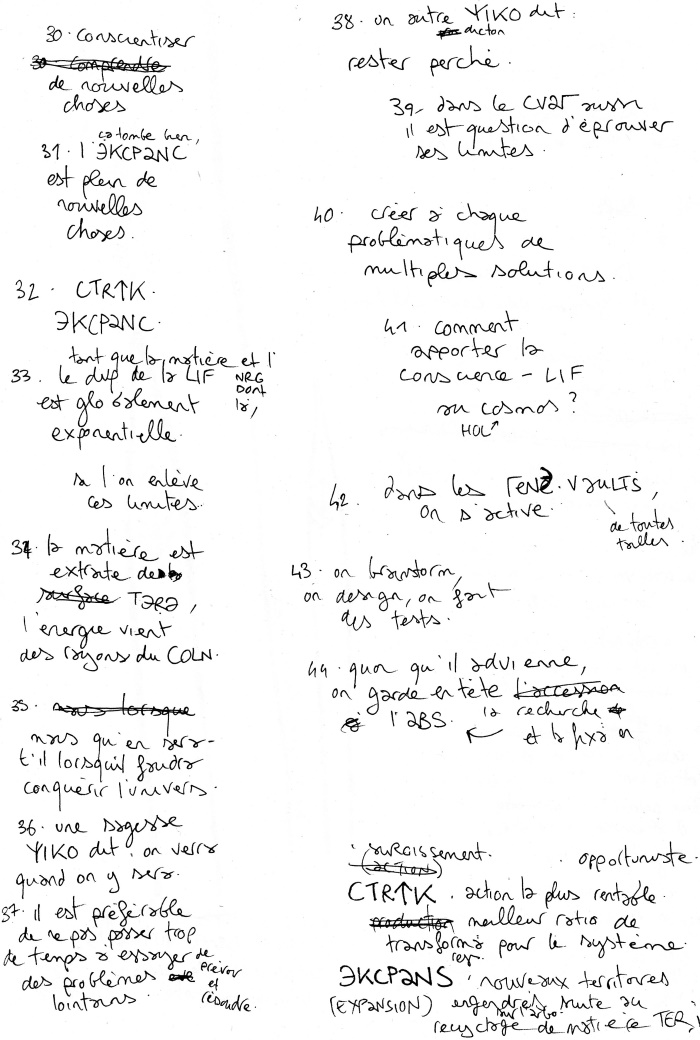 30. conscientiser
comprendre
de nouvelles
choses
ça tombe bien,
31. l'ЭKCPƏNC
est plein de
nouvelles
choses.
32. CTR↑K.
ЭKCPƏNC.
tant que la matière et l'
NRG
DONT
là,
33. le dvp de la LIF
est globalement
exponentielle.
si l'on enlève
ces limites.
34. la matière est
extraite de
surface TƏRƏ,
l'énergie vient
des rayons du COLN.
35. mais lorsque
mais qu'en sera-
t'il lorsqu'il faudra
conquérir l'univers.
36. une sagesse
YIKO dit: on verra
quand on y sera.
37. il est préférable
de ne pas passer trop
de temps à essayer de
prévoir
et
résoudre.
des problèmes
lointains.
38. un autre YIKO dit:
dicton
rester perché.
39. dans le CVƏΓ aussi
il est question d'éprouver
ses limites.
40. créer à chaque
problématiques de
multiples solutions.
41. comment
apporter la
conscience - LIF
au cosmos?
HOL↗
42. dans les ΓENƏ. VƏULTS,
on s'active.
de toutes
tailles.
43. on brainstorm,
on design, on fait
des tests.
44. quoi qu'il advienne,
on garde en tête l'accession
la recherche
l'ƏBS.
et la fixa en
surgissement.
(action)
. opportuniste.
CTR↑K. action la plus rentable.
production meilleur ratio de
transforma pour le système.
ЭKCPƏNS. nouveaux territoires
(EXPANSION) engendrés suite au
recyclage de matière TER,